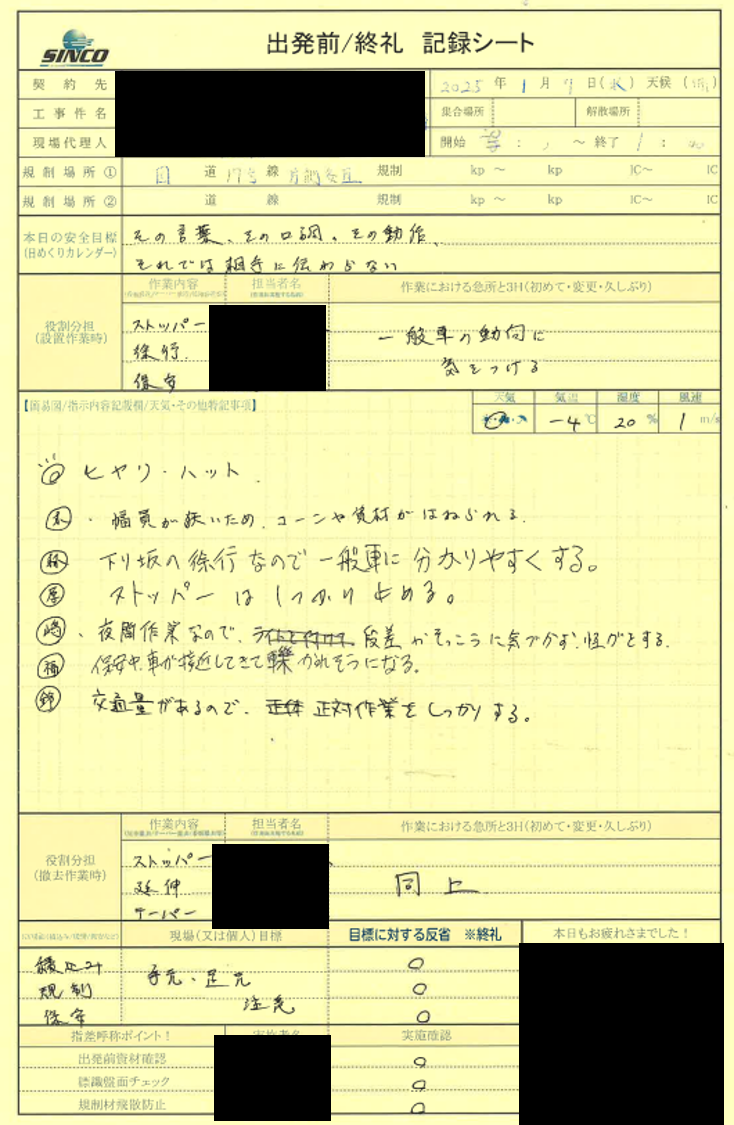 SINCO
出発前/終礼 記録シート
契約先
2025 年 1 月 9 日(水) 天候 (晴)
工事件名
集合場所 解散場所
現場代理人
開始 : ～ 終了 1 :
規制場所① 国 道 17号 線 規制 kp ～ kp IC～ IC
規制場所② 道 線 規制 kp ～ kp IC～ IC
本日の安全目標
(日めくりカレンダー)
その言葉、その口調、その動作、
それでは相手に伝わらない
役割分担
(設置作業時)
作業内容 担当者名 作業における急所と3H(初めて・変更・久しぶり)
ストッパー
徐行
保安
一般車の動向に
気をつける
【簡易図/指示内容記載欄/天気・その他特記事項】
天気 気温 湿度 風速
-4 ℃ 20 % 1 m/s
ヒヤリ・ハット.
・幅員が狭いため、コーンや資材がはねられる.
下り坂の徐行なので一般車に分かりやすくする。
ストッパーはしっかり止める。
崎 ・夜間作業なので、段差やそっこうに気づかず、怪がをする.
福 保安中、車が接近してきて轢かれそうになる。
鈴 交通量があるので、正対作業をしっかりする。
役割分担
(撤去作業時)
作業内容 担当者名 作業における急所と3H(初めて・変更・久しぶり)
ストッパー
延伸
テーパー
同上
現場(又は個人)目標 目標に対する反省 ※終礼 本日もお疲れさまでした!
積込み
規制
保安
手元・足元
注意
○
○
○
指差呼称ポイント! 実施確認
出発前資材確認 ○
標識盤面チェック ○
規制材飛散防止 ○